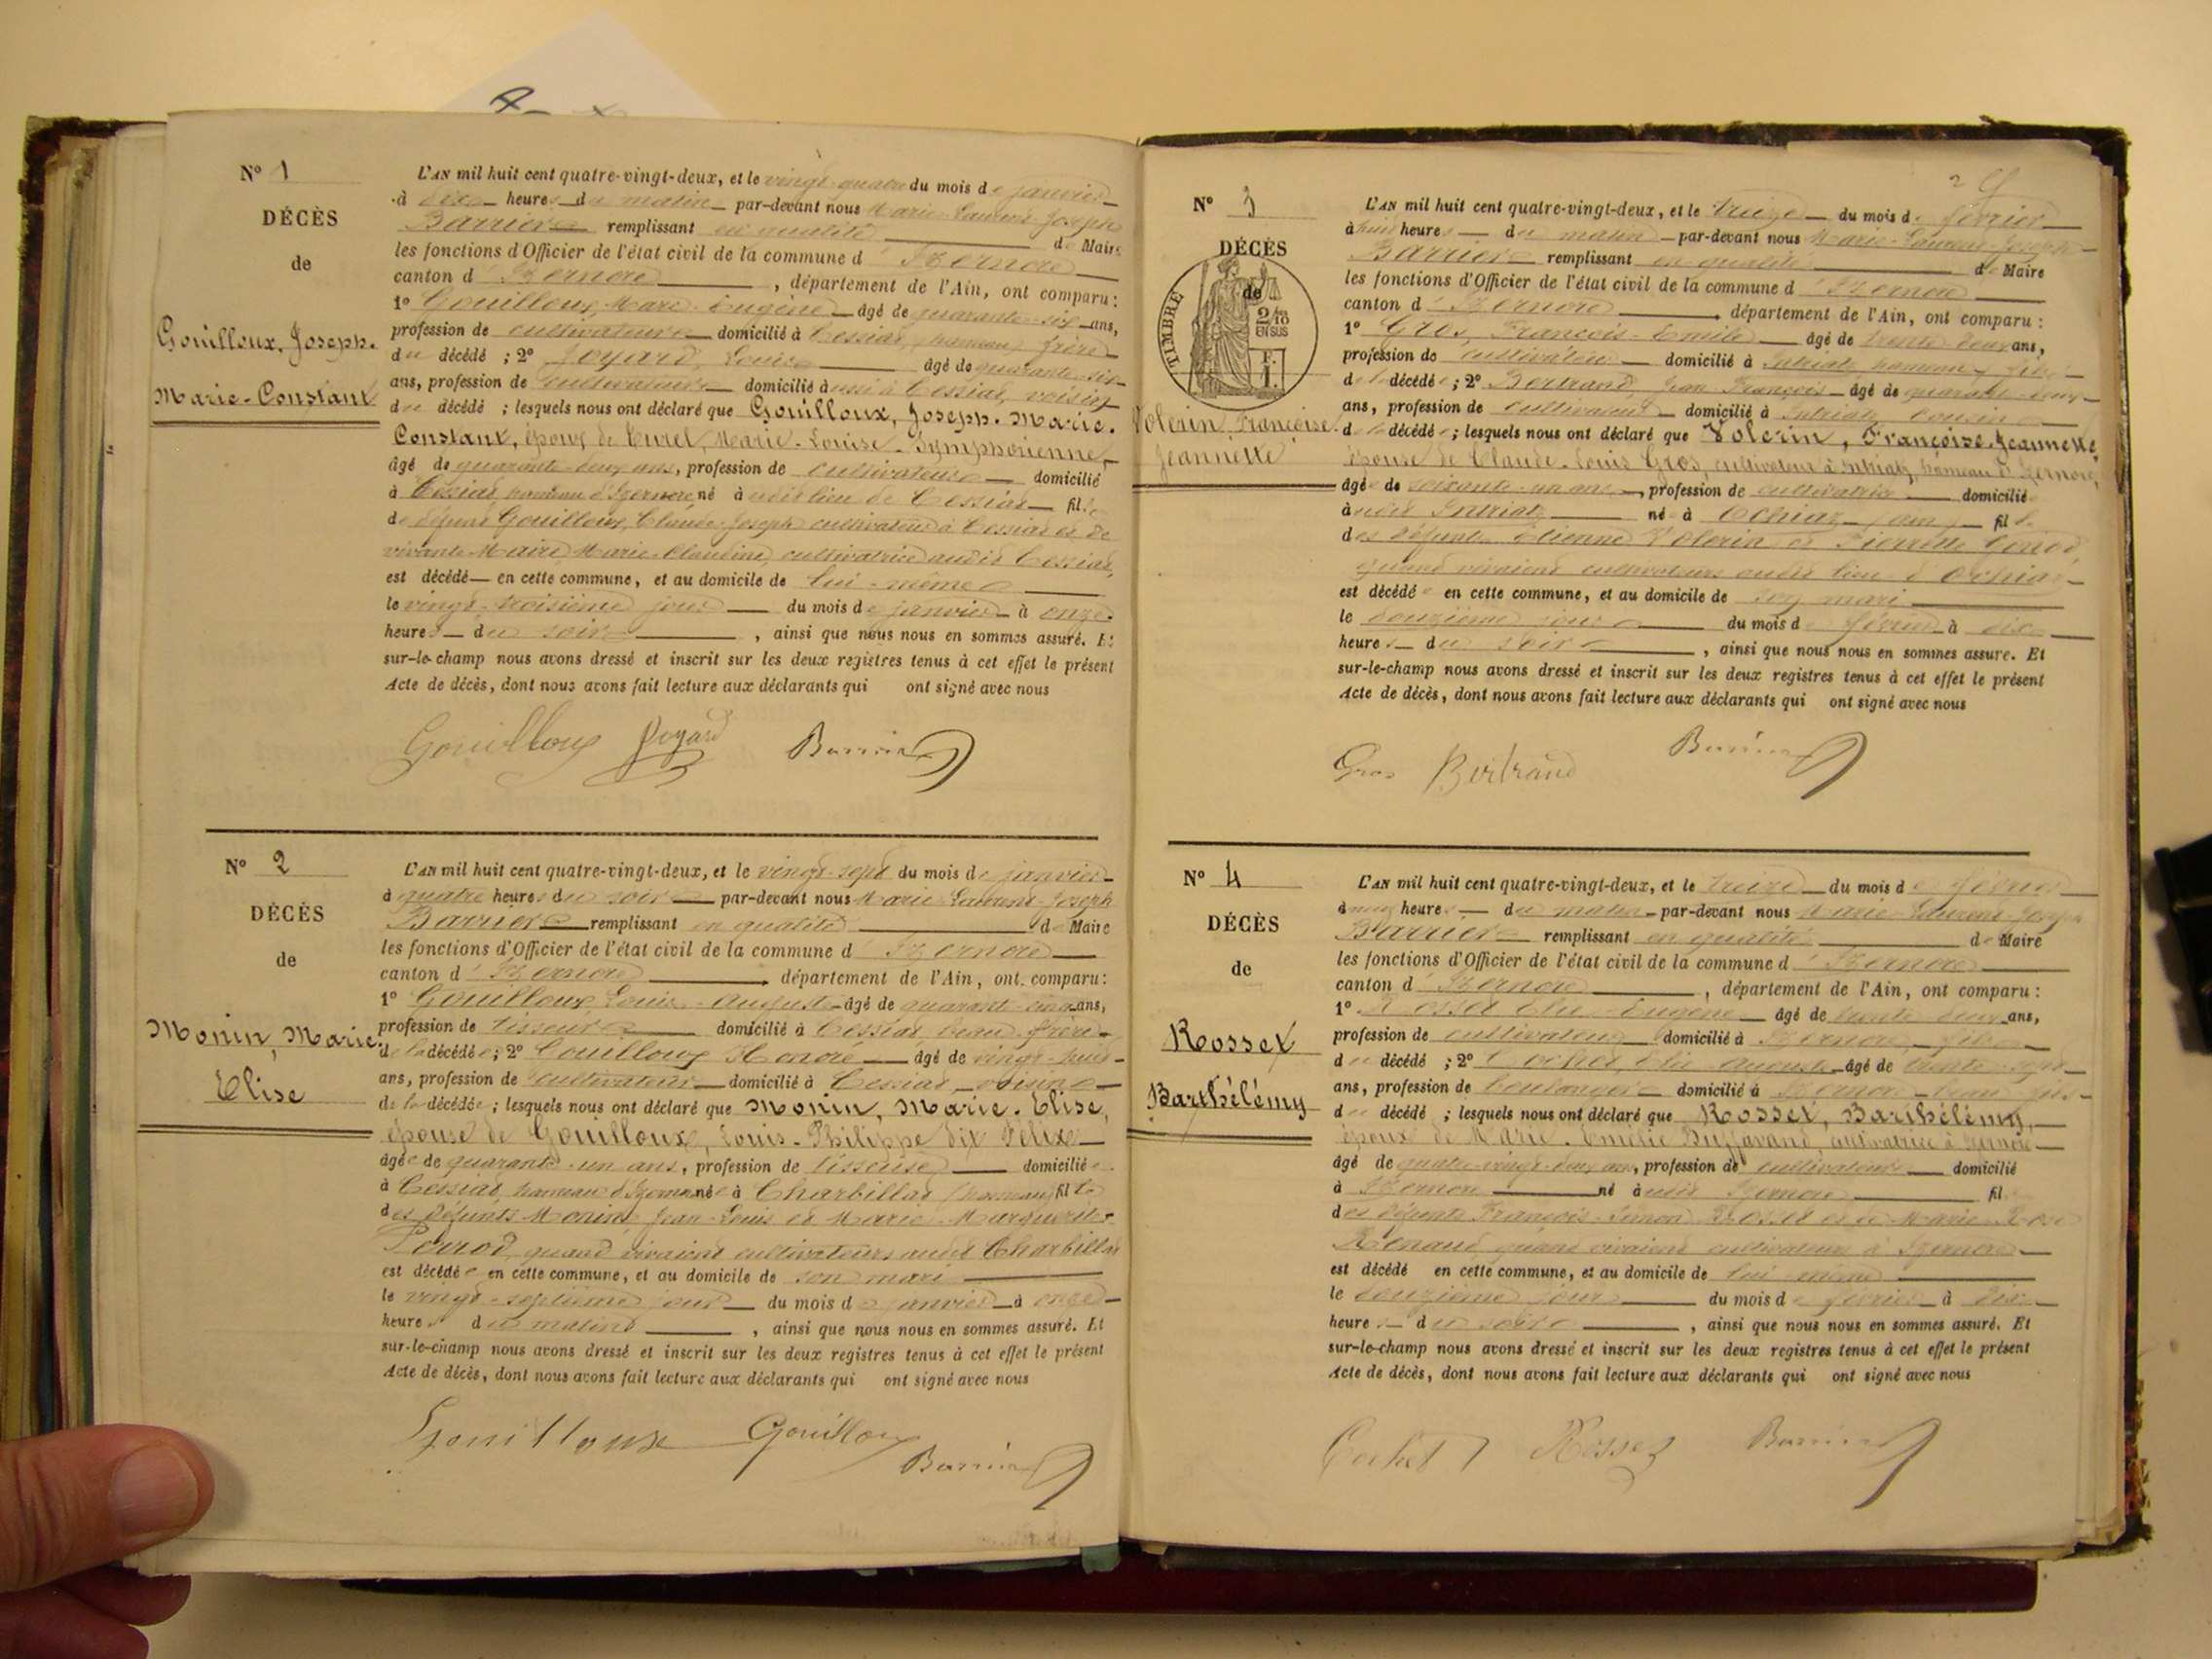 N° 1
DÉCÈS
de
Gouilloux, Joseph.
Marie-Constant
L'AN mil huit cent quatre-vingt-deux, et le vingt quatre du mois de janvier
à dix heures du matin par-devant nous Marie Laurent Joseph
Barrier remplissant en qualité de Maire
les fonctions d'Officier de l'état civil de la commune d'Izernore
canton d'Izernore, département de l'Ain, ont comparu :
1° Gouilloux, Marc Eugène âgé de quarante-six ans,
profession de cultivateur domicilié à Cessiat, hameau, frère
du décédé ; 2° Joyard, Louis âgé de quarante-six
ans, profession de cultivateur domicilié aussi à Cessiat, voisin
du décédé ; lesquels nous ont déclaré que Gouilloux, Joseph. Marie.
Constant, époux de Curel, Marie-Louise-Symphorienne,
âgé de quarante-deux ans, profession de cultivateur domicilié
à Cessiat, hameau d'Izernore né à udit lieu de Cessiat fils
de défunt Gouilloux, Claude-Joseph cultivateur à Cessiat et de
vivante Maire, Marie-Claudine, cultivatrice audit Cessiat,
est décédé en cette commune, et au domicile de lui-même
le vingt-troisième jour du mois de janvier à onze
heures du soir, ainsi que nous nous en sommes assuré. Et
sur-le-champ nous avons dressé et inscrit sur les deux registres tenus à cet effet le présent
Acte de décès, dont nous avons fait lecture aux déclarants qui ont signé avec nous
Gouilloux Joyard Barrier
N° 2
DÉCÈS
de
Monin, Marie.
Elise
L'AN mil huit cent quatre-vingt-deux, et le vingt-sept du mois de janvier
à quatre heures du soir par-devant nous Marie Laurent Joseph
Barrier remplissant en qualité de Maire
les fonctions d'Officier de l'état civil de la commune d'Izernore
canton d'Izernore, département de l'Ain, ont comparu :
1° Gouilloux, Louis-Auguste âgé de quarante-cinq ans,
profession de tisseur domicilié à Cessiat, beau-frère
de la décédée ; 2° Gouilloux Honoré âgé de vingt-huit
ans, profession de cultivateur domicilié à Cessiat, voisin
de la décédée ; lesquels nous ont déclaré que Monin, Marie. Elise,
épouse de Gouilloux, Louis-Philippe dit Félix
âgée de quarante-un ans, profession de tisseuse domiciliée
à Cessiat, hameau d'Izernore née à Charbillat (hameau) fille
des défunts Monin Jean-Louis et Marie-Marguerite
quand vivaient cultivateurs audit Charbillat
est décédée en cette commune, et au domicile de son mari
le vingt-septième jour du mois de janvier à onze
heures du matin, ainsi que nous nous en sommes assuré. Et
sur-le-champ nous avons dressé et inscrit sur les deux registres tenus à cet effet le présent
Acte de décès, dont nous avons fait lecture aux déclarants qui ont signé avec nous
Gouilloux Gouilloux Barrier
2
N° 3
DÉCÈS
de
TIMBRE
2/10
EN SUS
Volerin, Françoise.
Jeannette
L'AN mil huit cent quatre-vingt-deux, et le treize du mois de février
à huit heures du matin par-devant nous Marie-Laurent-Joseph
Barrier remplissant en qualité de Maire
les fonctions d'Officier de l'état civil de la commune d'Izernore
canton d'Izernore département de l'Ain, ont comparu :
1° Gros, François-Emile âgé de trente-deux ans,
profession de cultivateur domicilié à Intriat, hameau, fils
de la décédée ; 2° Bertrand, Jean François âgé de quarante-deux
ans, profession de cultivateur domicilié à Intriat, cousin
de la décédée ; lesquels nous ont déclaré que Volerin, Françoise. Jeannette,
épouse de Claude-Louis Gros, cultivateur à Intriat, hameau d'Izernore,
âgée de soixante-un ans, profession de cultivatrice domiciliée
à udit Intriat née à Ochiaz (Ain) fille
des défunts Etienne Volerin et Pierrette
quand vivaient cultivateurs audit lieu d'Ochiaz
est décédée en cette commune, et au domicile de son mari
le douzième jour du mois de février à dix
heures du soir, ainsi que nous nous en sommes assuré. Et
sur-le-champ nous avons dressé et inscrit sur les deux registres tenus à cet effet le présent
Acte de décès, dont nous avons fait lecture aux déclarants qui ont signé avec nous
Gros Bertrand Barrier
N° 4
DÉCÈS
de
Rosset
Barthélémy
L'AN mil huit cent quatre-vingt-deux, et le treize du mois de février
à neuf heures du matin par-devant nous Marie-Laurent-Joseph
Barrier remplissant en qualité de Maire
les fonctions d'Officier de l'état civil de la commune d'Izernore
canton d'Izernore, département de l'Ain, ont comparu :
1° Rosset Elie-Eugène âgé de trente-deux ans,
profession de cultivateur domicilié à Izernore, fils
du décédé ; 2° Cochet, Elie Auguste âgé de trente-sept
ans, profession de boulanger domicilié à Izernore beau-fils
du décédé ; lesquels nous ont déclaré que Rosset, Barthélémy,
époux de Marie-Emélie Buffavand, cultivatrice à Izernore
âgé de quatre-vingt-deux ans, profession de cultivateur domicilié
à Izernore né à udit Izernore fil
des défunts François-Simon Rosset et de Marie-Rose
Renaud, quand vivaient cultivateurs à Izernore
est décédé en cette commune, et au domicile de lui-même
le douzième jour du mois de février à dix
heures du soir, ainsi que nous nous en sommes assuré. Et
sur-le-champ nous avons dressé et inscrit sur les deux registres tenus à cet effet le présent
Acte de décès, dont nous avons fait lecture aux déclarants qui ont signé avec nous
Cochet Rosset Barrier